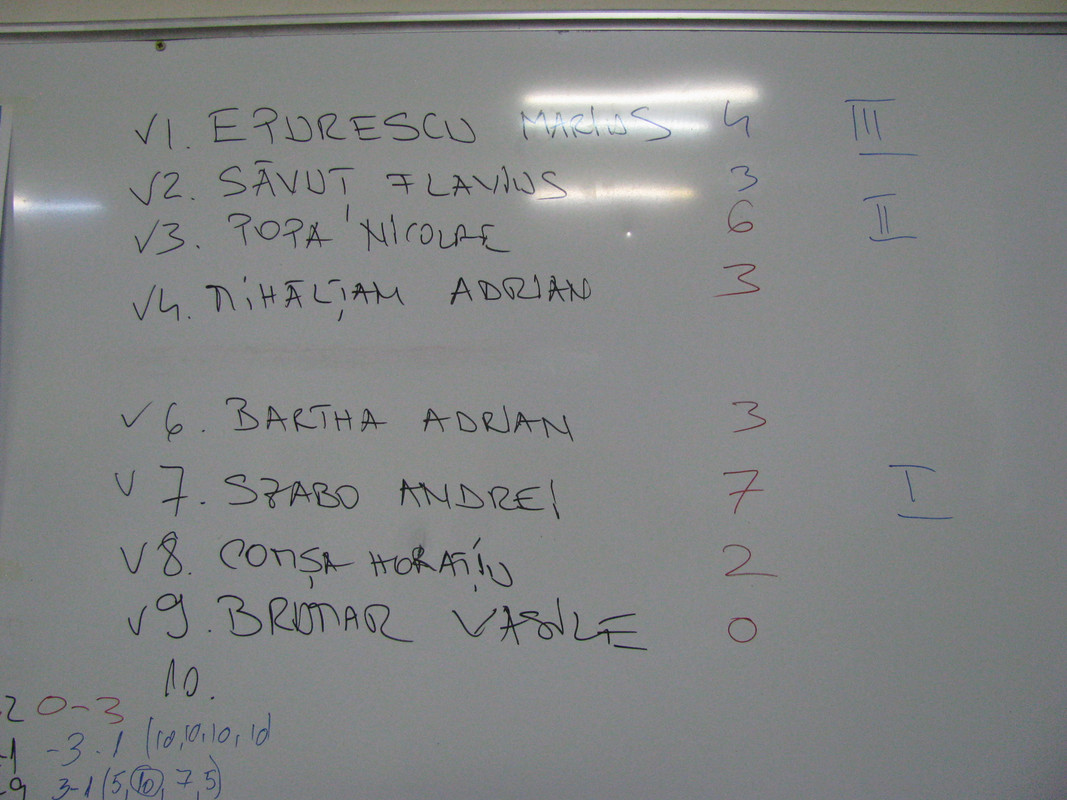 √1. EPURESCU MARIUS 4 III
√2. SĂVUȚ FLAVIUS 3
√3. POPA NICOLAE 6 II
√4. MIHĂLȚAM ADRIAN 3
√6. BARTHA ADRIAN 3
√7. SZABO ANDREI 7 I
√8. COMȘA HORAȚIU 2
√9. BRUMAR VASILE 0
10.
-2 0-3
-1 -3-1 (10,10,10,10
-9 3-1 (5,10,7,5)